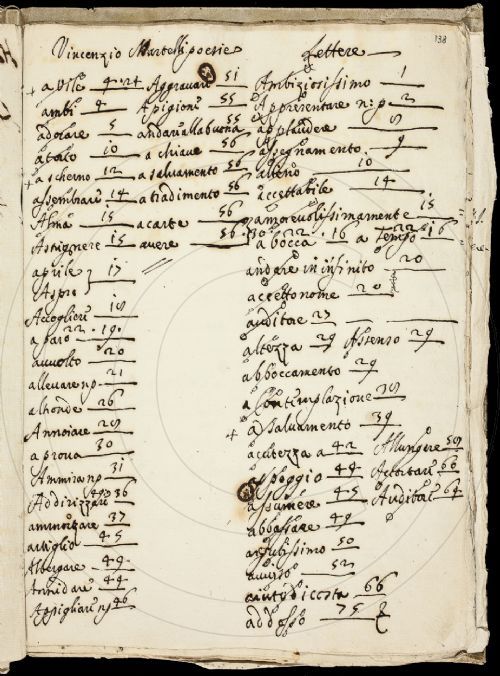 138
Vincenzio Martelli poesie
+ a vile 4 · 24
ambi 4
adorare 5
a tolo 10
+ a scherno 12
assembrare 14
Alma 15
Astignere 15
aprile 17
Aspro
Accogliere 18
a paro 22 · 19
avvolto 20
allevare np 21
alhonde 26
Annoiare 29
a prova 30
Ammira np 31
Addirizzare 36
ammorzare 37
artiglio 45
Albergare 49
Annidare 44
Appigliare np 46
Aggravare 51
A pigione 55
andare alla buona 55
a chiave 56
a salvamento 56
a tradimento 56
a carte 56
avere 56
Lettere
Ambiziosissimo 1
Appresentare n: p. 2
applaudere 8
assegnamento 9
alieno 10
accettabile 14
amorevolissimamente 15
a bocca · 16 a Tempo 16
andare in infinito 20
accetto nome 20
altezza 29 Assenso 29
abboccamento 29
a Contemplazione 38
+ a salvamento 39
acutezza a 42 Allungare 59
appoggio 44 Accertare 60
assumere 45 Audita 64
abbassare 49
50
avverso 52
66
addosso 75